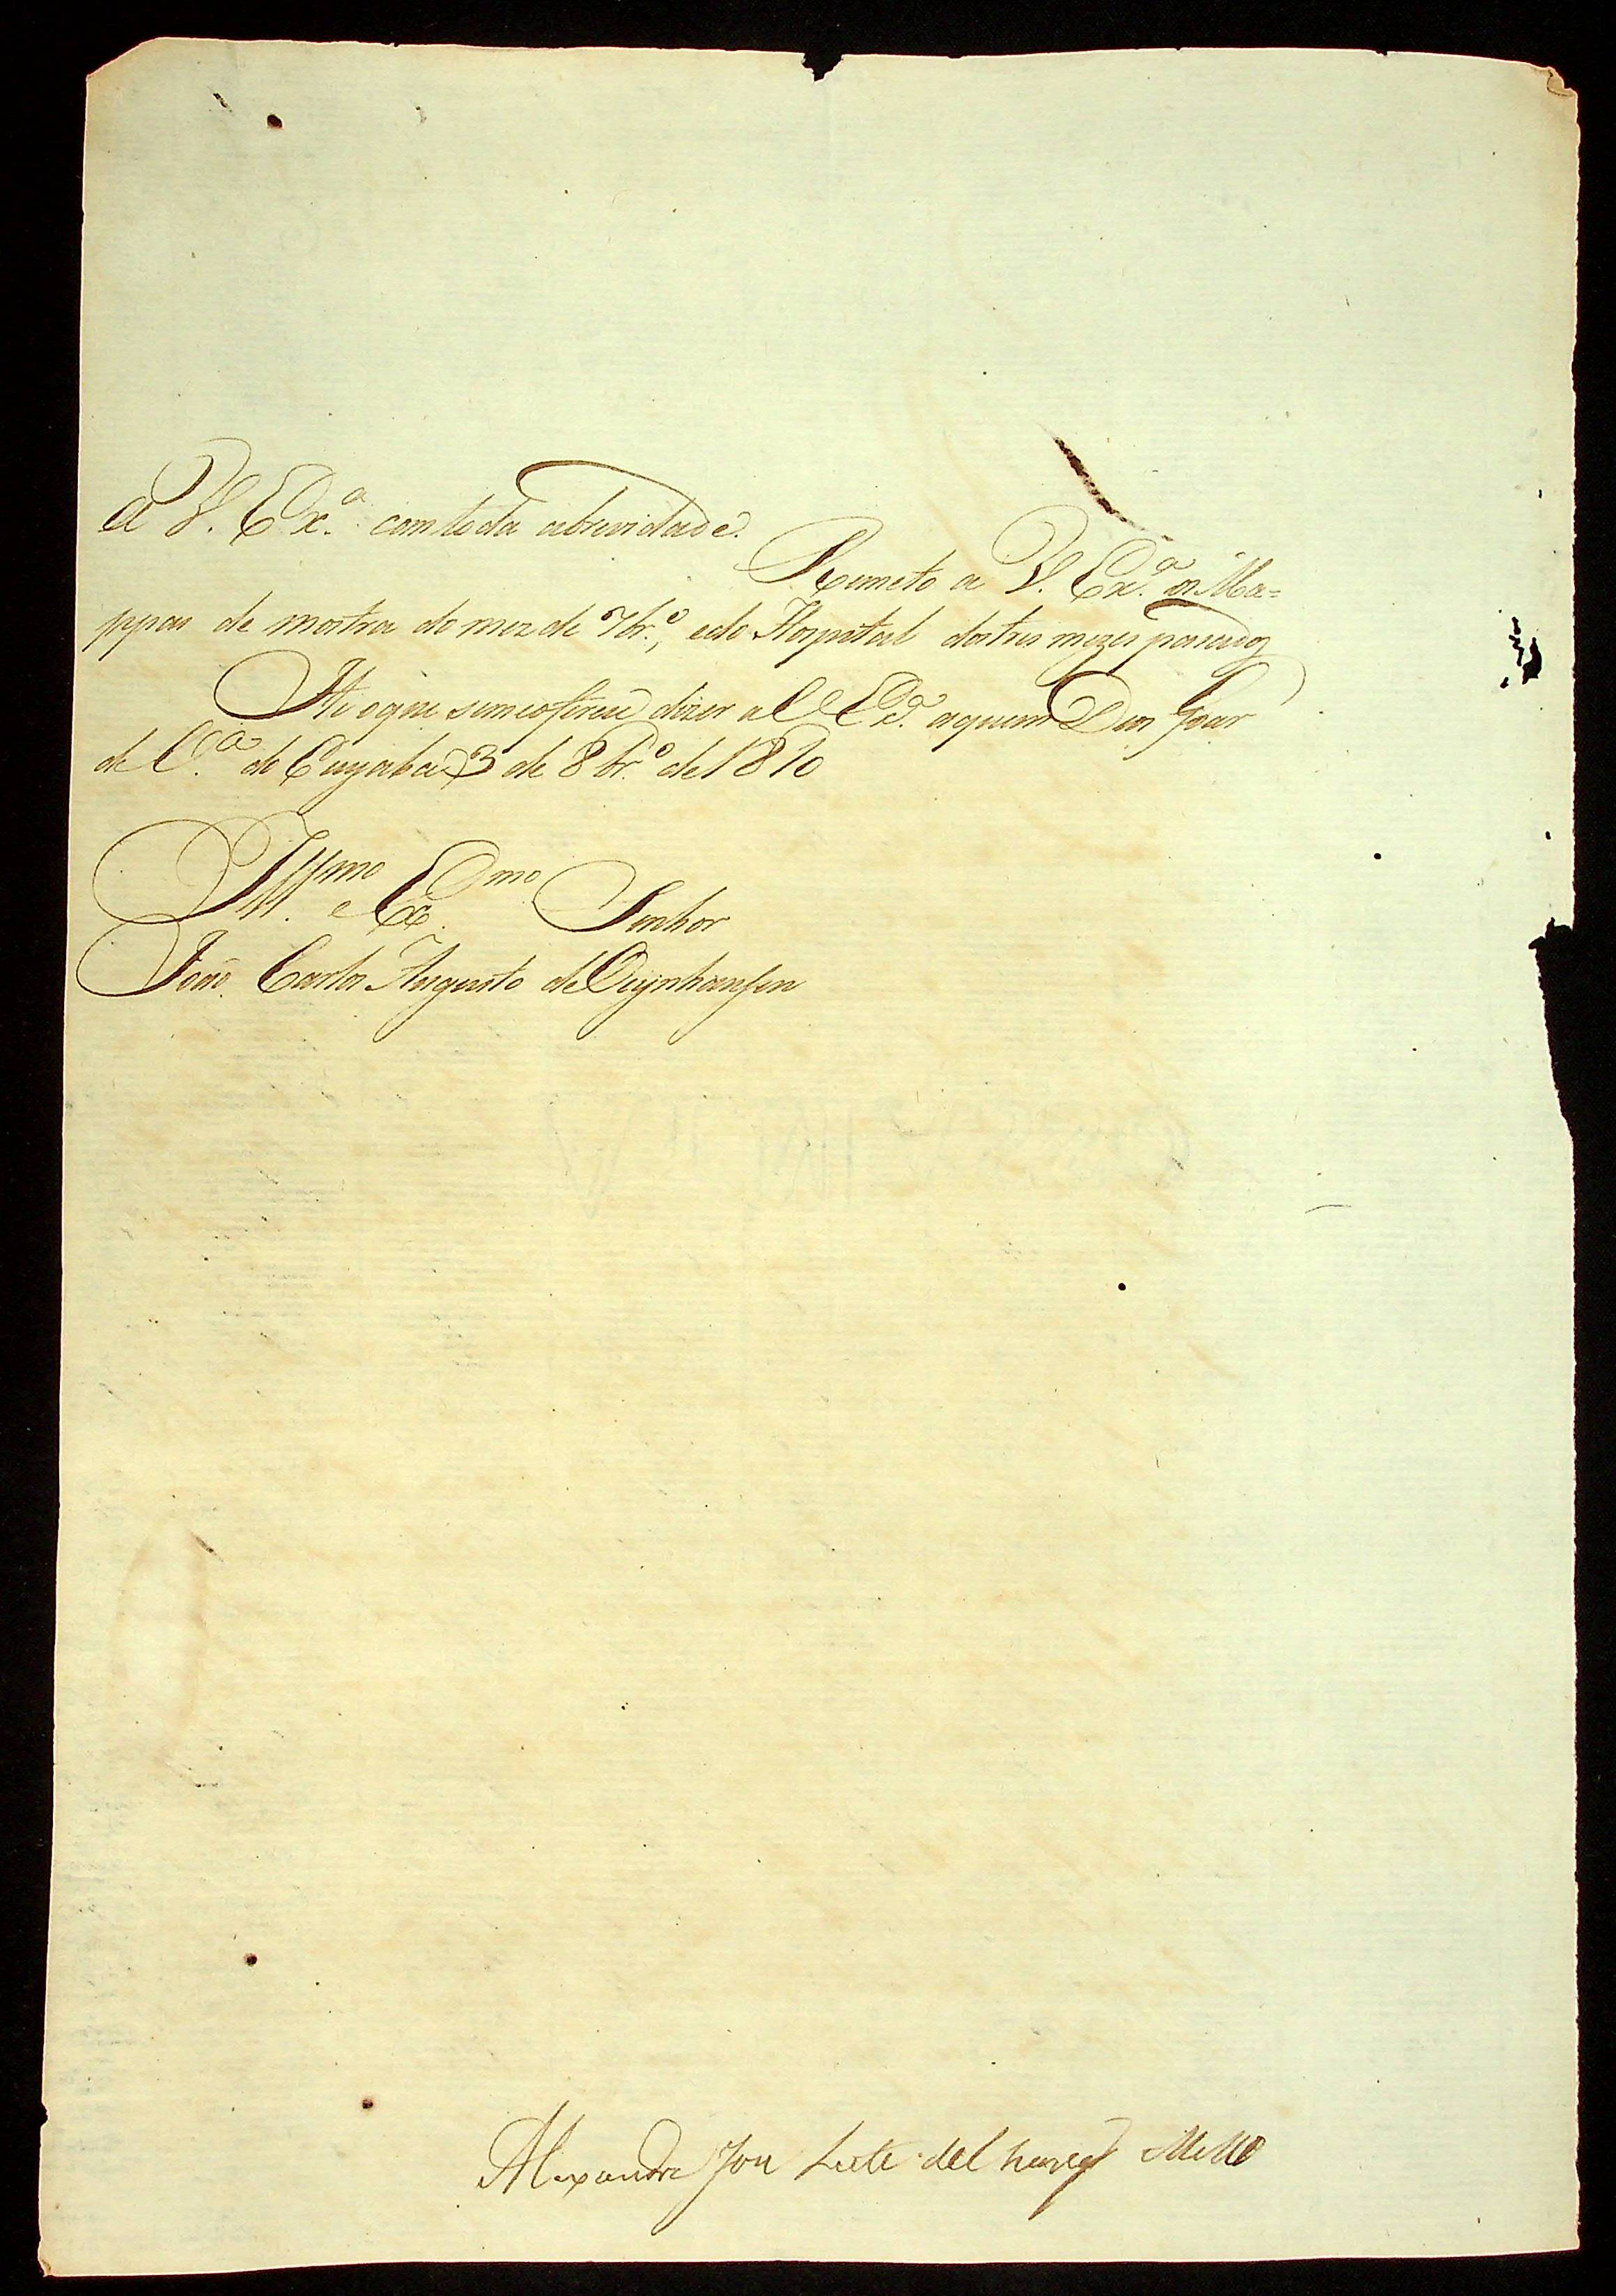 a V. Exª. com toda abrevidade.
Remeto a V. Exª. os Ma=
ppas de mostra do mez de 7br.º, edo Hospital dostres mezes passados
He oque semeoferece dizer a V. Exª. aquem Deos Goar
de Cª. do Cuyabá 3 de 8br.º de 1810
Illmo. e Exmo. Senhor
João Carlos Augusto de Oeynhausen
Alexandre Joze Leite de Chaves Mello